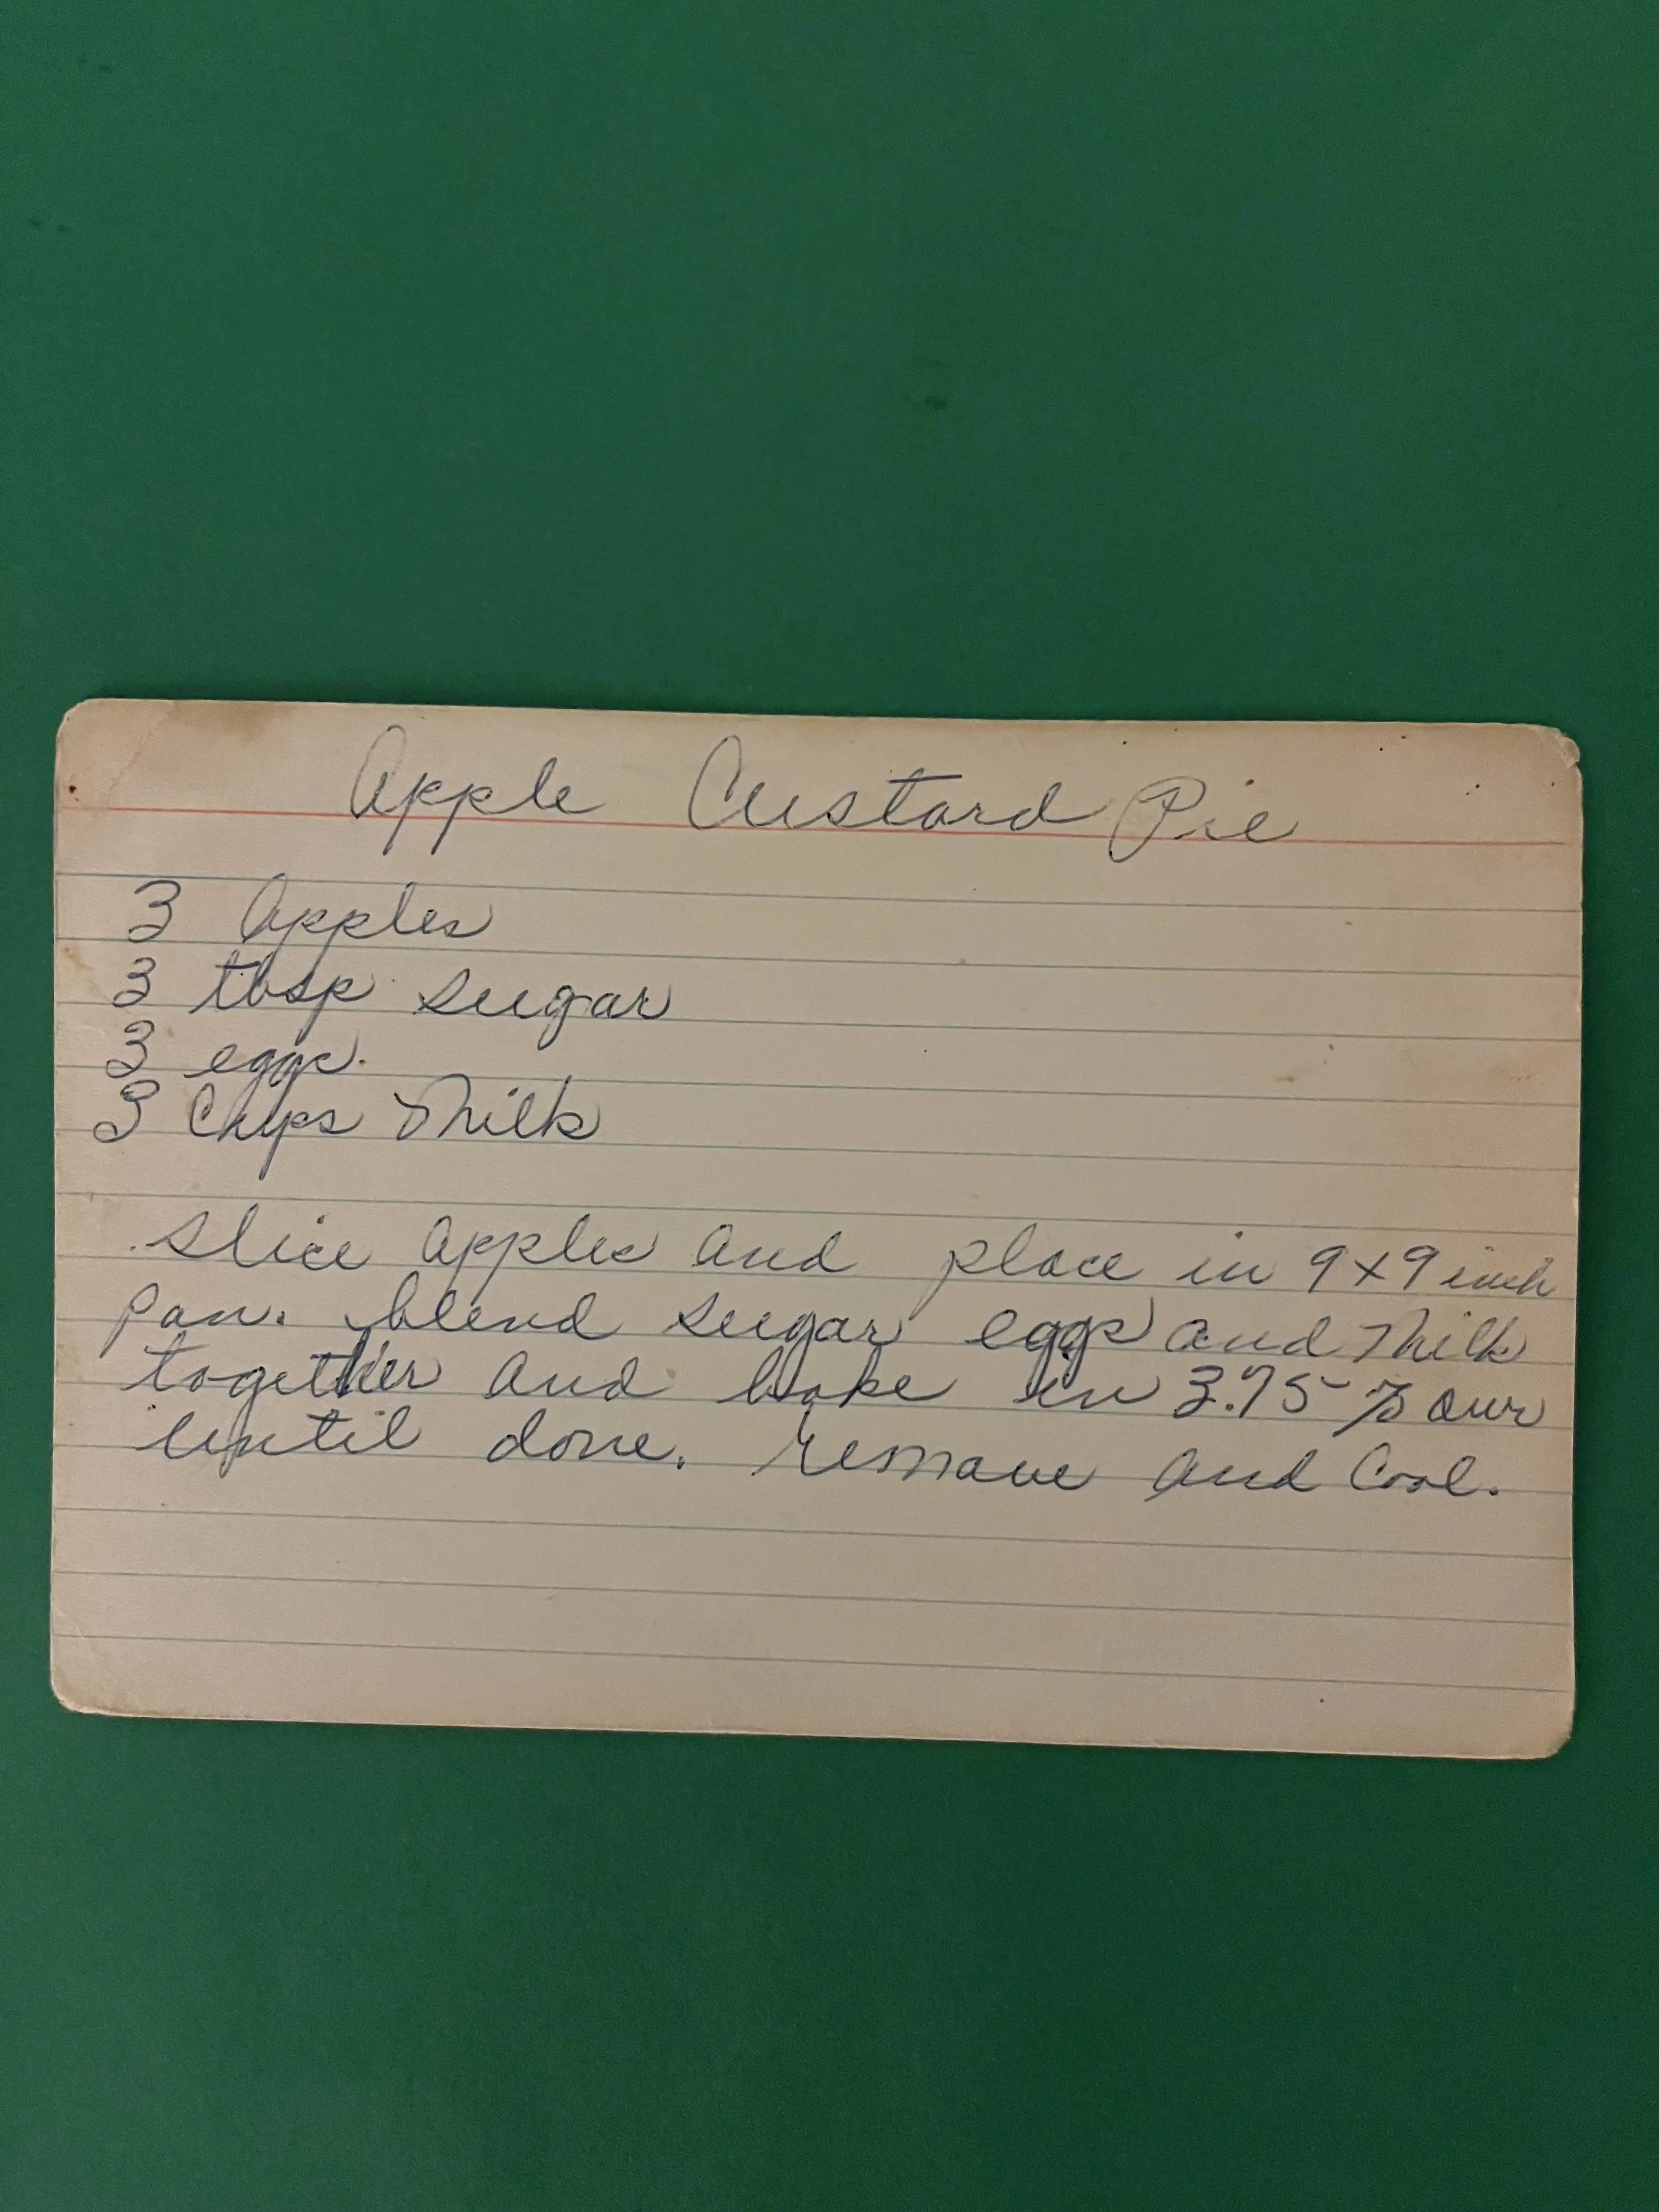 Apple Custard Pie
3 Apples
3 tbsp sugar
3 eggs.
3 Cups Milk
Slice apples and place in 9x9 inch
pan. blend sugar eggs and Milk
together and bake in 3.75
until done. Remove and Cool.